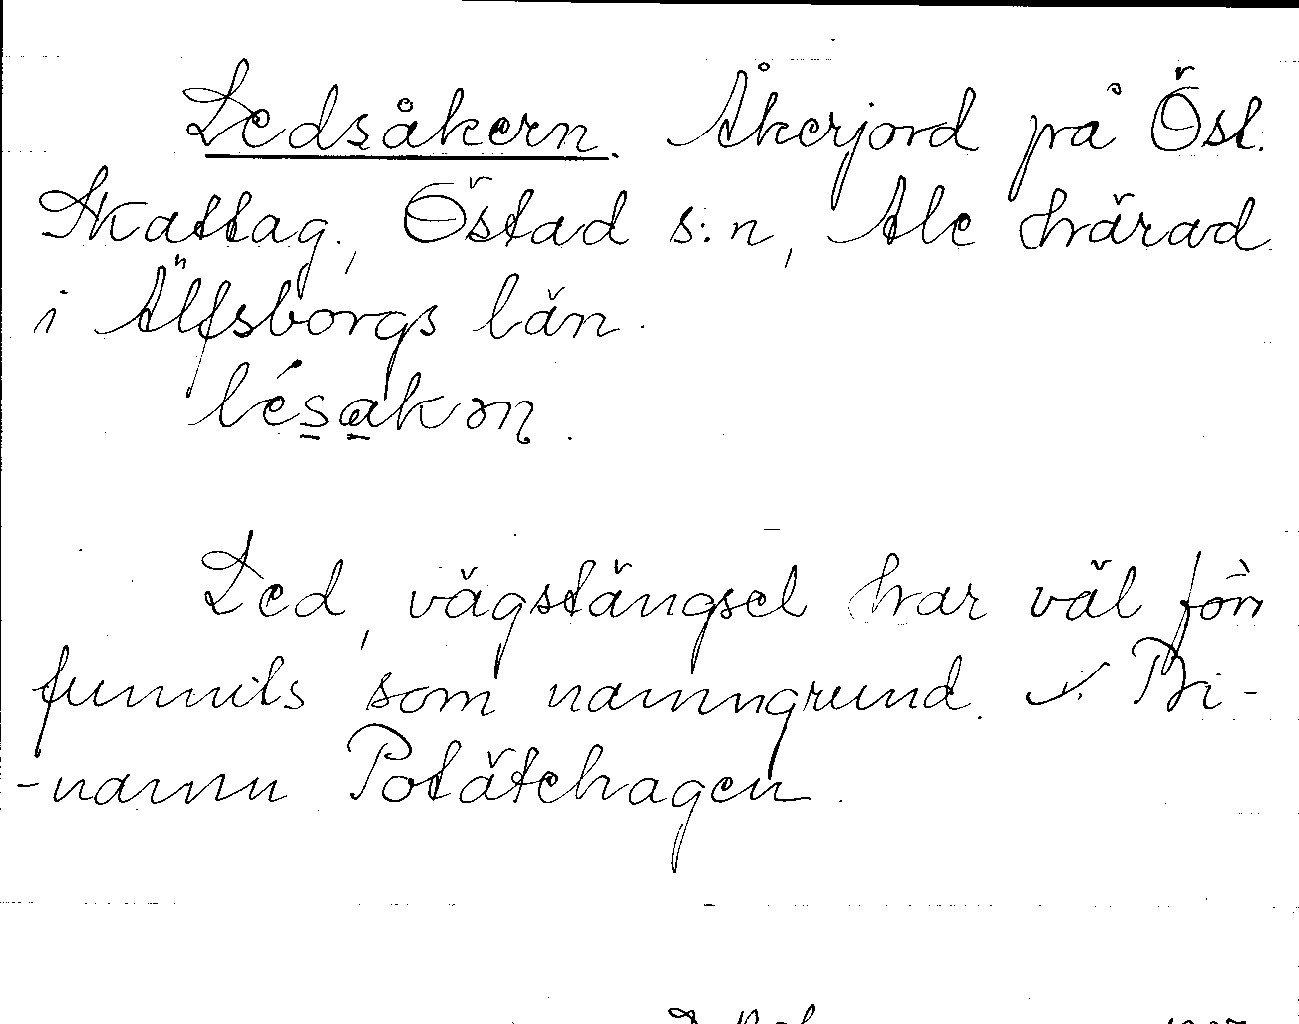 Ledsåkern. Åkerjord på Östl.
Skattag., Östad s:n, Ale härad
i Älfsborgs län.
lésakən.
Led, vägstängsel har väl förr
funnits som namngrund. Bi-
-namn Potätehagen.